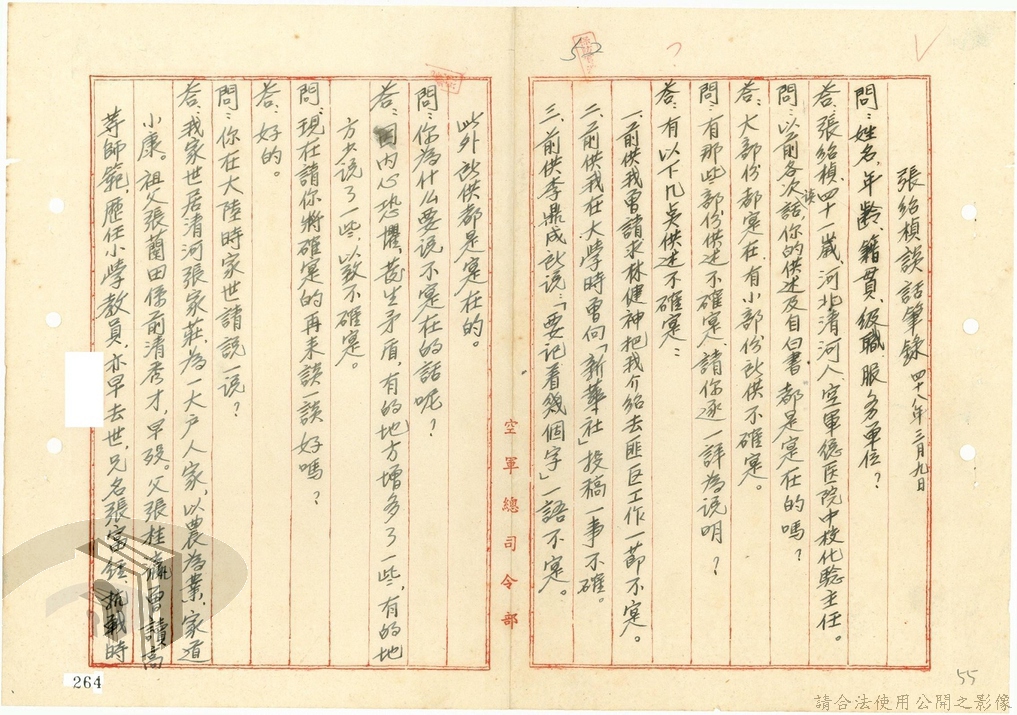 張紹楨談話筆錄 四十八年三月九日
問：姓名，年齡，籍貫，級職，服務單位？
答：張紹楨，四十一歲，河北清河人，空軍總医院中校化驗主任。
問：以前各次談話，你的供述及自白書，都是寔在的嗎？
答：大部份都寔在，有小部份所供不確寔。
問：有那些部份供述不確寔，請你逐一詳為說明？
答：有以下几点供述不確寔：
一、前供我曾請求林健神把我介绍去匪區工作一節不寔。
二、前供我在大學時曾向「新華社」投稿一事不確。
三、前供李鼎成所說：「要記着幾個字」一語不寔。
空軍總司令部
此外所供都是寔在的。
問：你為什么要说不寔在的話呢？
答：因內心恐懼，發生矛盾，有的地方增多了一些，有的地
方少说了一些，以致不確寔。
問：現在請你將確寔的再來談一談好嗎？
答：好的。
問：你在大陸時家世請說一说？
答：我家世居清河張家莊，為一大户人家，以農為業，家道
小康。祖父張蘭田係前清秀才，早殁。父張桂瀛曾讀高
等師範，歷任小學教員，亦早去世，兄名張富鈺，抗戰時
52
？
55
264
請合法使用公開之影像